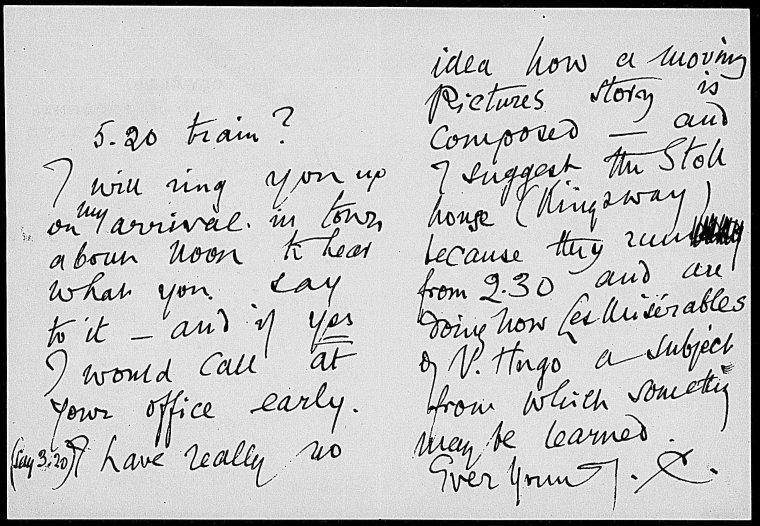 5.20 train?
I will ring you up
on my arrival in town
about noon to hear
what you say
to it — and if yes
I would call at
your office early.
(say 3.20) I have really no
idea how a moving
Pictures story is
composed — and
I suggest the Stoll
house (Kingsway)
because they run
from 2.30 and are
doing now Les Misérables
of V. Hugo a subject
from which something
may be learned.
Ever Yours J. C.